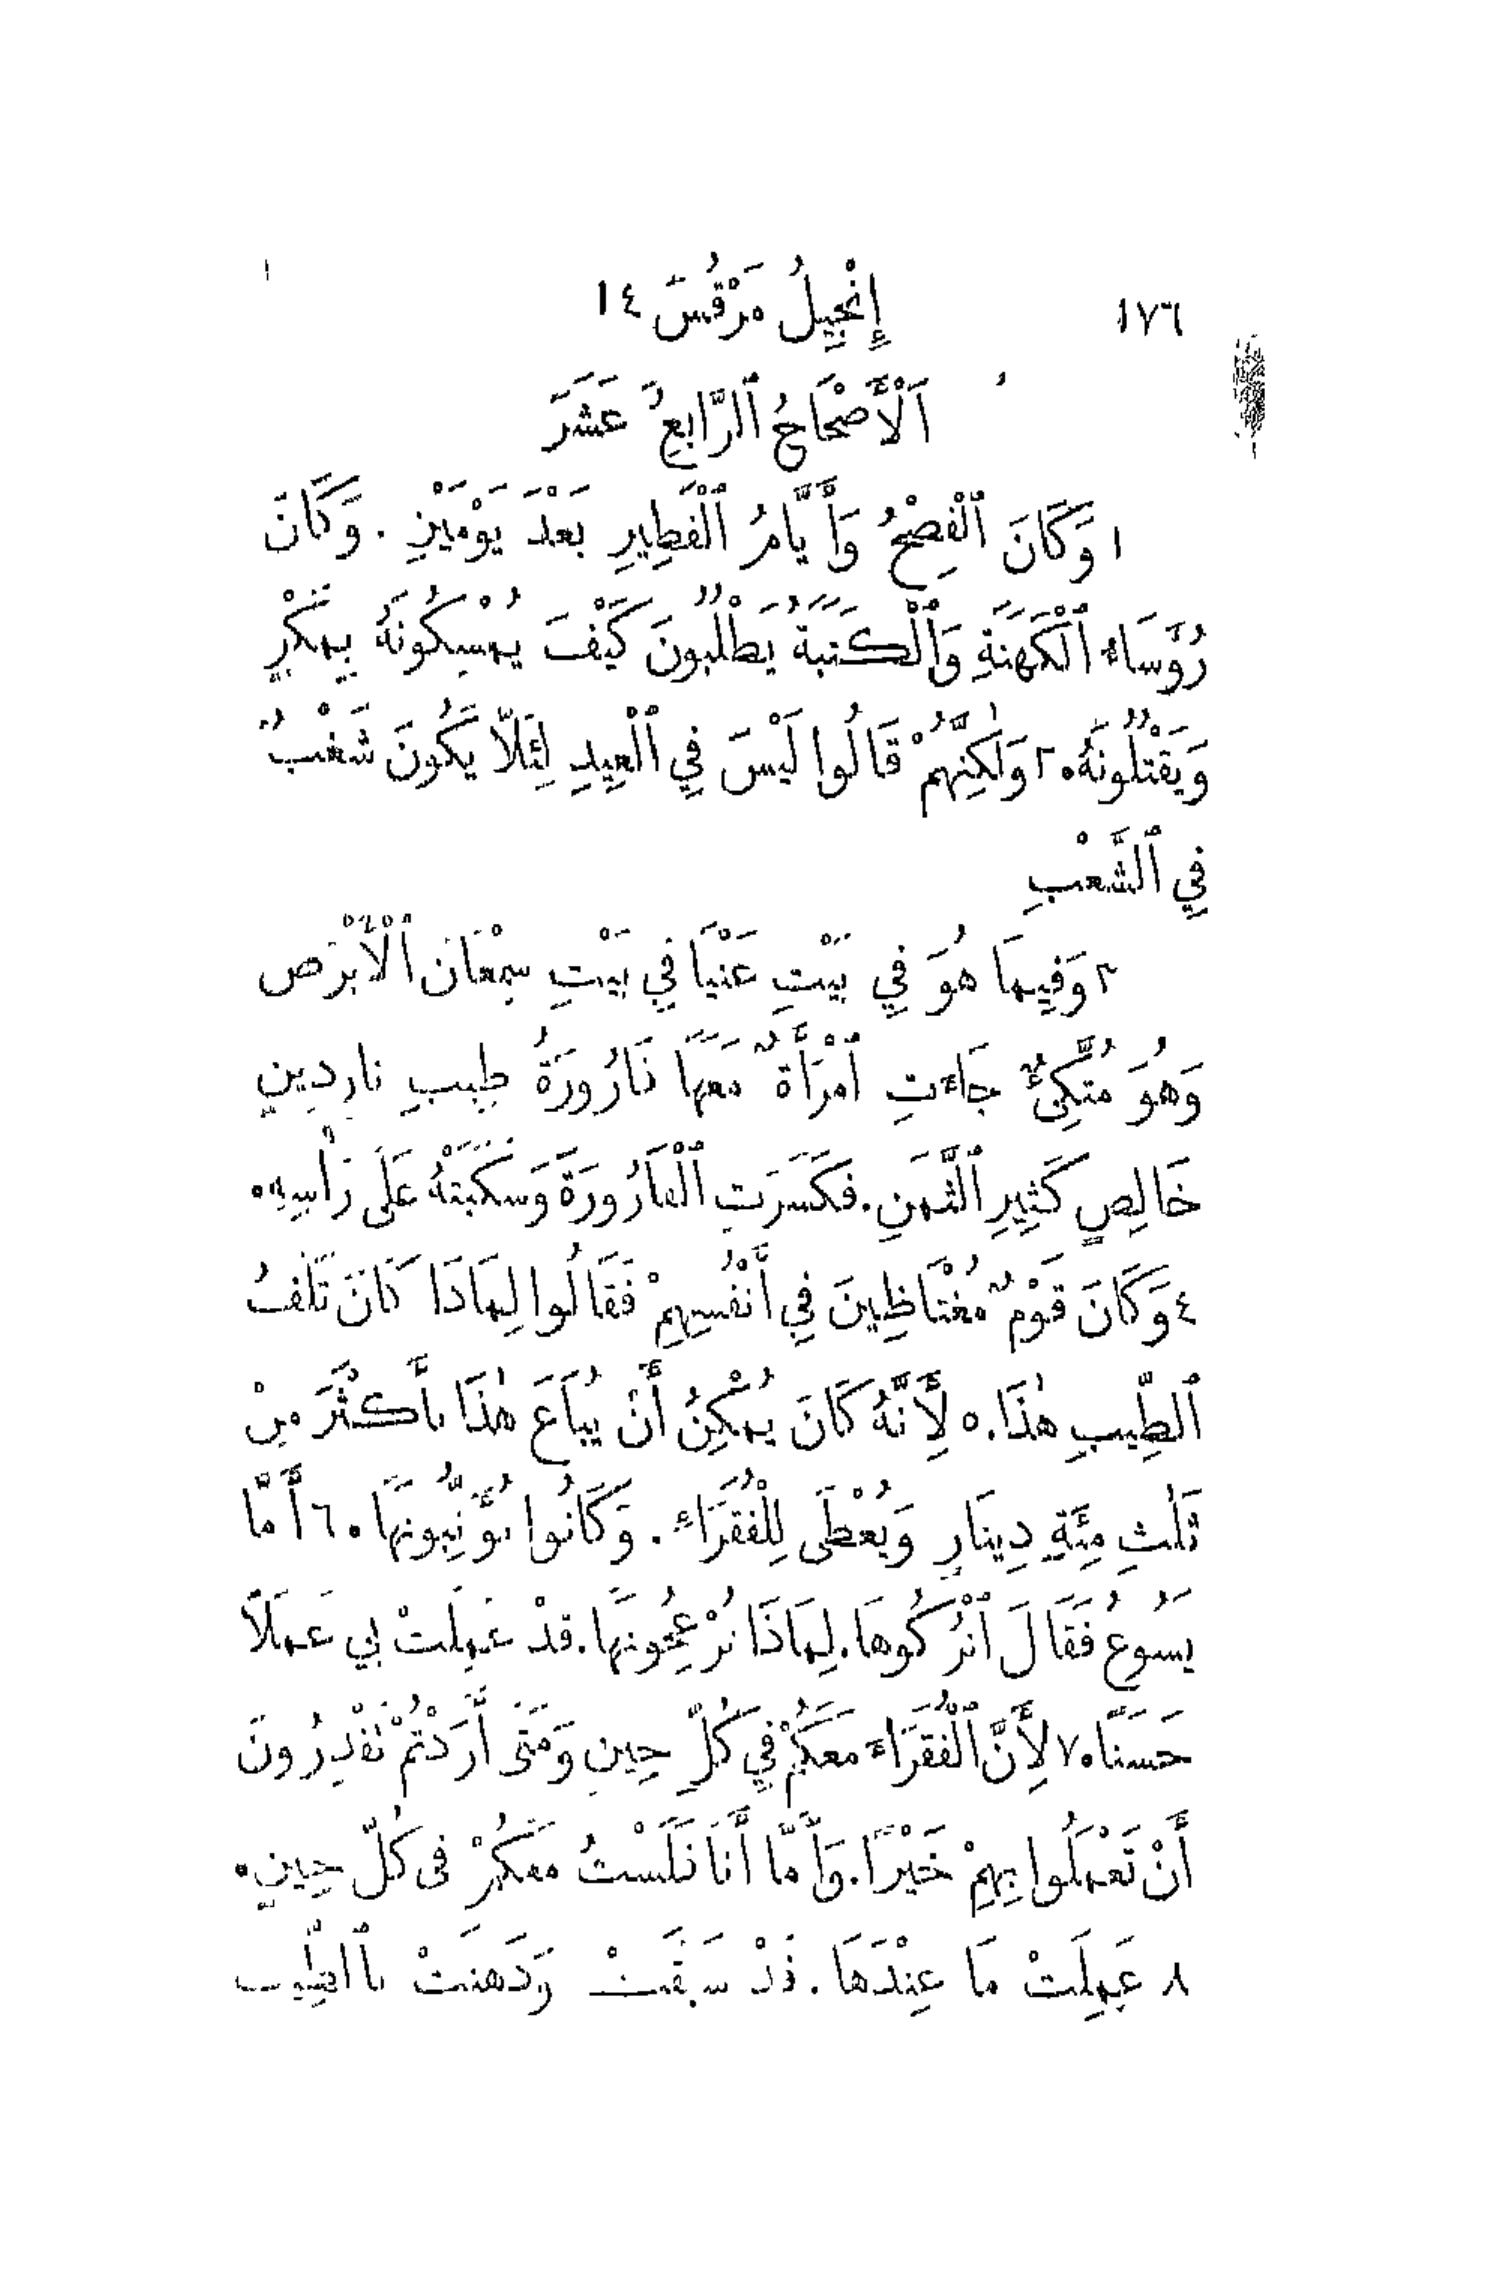 ١٧٦ إِنْجِيلُ مَرْقُسَ ١٤
اَلْأَصْحَاحُ ٱلرَّابِعُ عَشَرَ
١ وَكَانَ ٱلْفِصْحُ وَأَيَّامُ ٱلْفَطِيرِ بَعْدَ يَوْمَيْنِ. وَكَانَ
رُؤَسَاءُ ٱلْكَهَنَةِ وَٱلْكَتَبَةُ يَطْلُبُونَ كَيْفَ يُمْسِكُونَهُ بِمَكْرٍ
وَيَقْتُلُونَهُ. ٢ وَلٰكِنَّهُمْ قَالُوا لَيْسَ فِي ٱلْعِيدِ لِئَلَّا يَكُونَ شَغْبٌ
فِي ٱلشَّعْبِ
٣ وَفِيمَا هُوَ فِي بَيْتِ عَنْيَا فِي بَيْتِ سِمْعَانَ ٱلْأَبْرَصِ
وَهُوَ مُتَّكِئٌ جَاءَتِ ٱمْرَأَةٌ مَعَهَا قَارُورَةُ طِيبِ نَارِدِينٍ
خَالِصٍ كَثِيرِ ٱلثَّمَنِ. فَكَسَرَتِ ٱلْقَارُورَةَ وَسَكَبَتْهُ عَلَى رَأْسِهِ.
٤ وَكَانَ قَوْمٌ مُغْتَاظِينَ فِي أَنْفُسِهِمْ فَقَالُوا لِمَاذَا كَانَ تَلَفُ
ٱلطِّيبِ هٰذَا. ٥ لِأَنَّهُ كَانَ يُمْكِنُ أَنْ يُبَاعَ هٰذَا بِأَكْثَرَ مِنْ
ثَلٰثِ مِئَةِ دِينَارٍ وَيُعْطَى لِلْفُقَرَاءِ. وَكَانُوا يُؤَنِّبُونَهَا. ٦ أَمَّا
يَسُوعُ فَقَالَ ٱتْرُكُوهَا. لِمَاذَا تُزْعِجُونَهَا. قَدْ عَمِلَتْ بِي عَمَلًا
حَسَنًا. ٧ لِأَنَّ ٱلْفُقَرَاءَ مَعَكُمْ فِي كُلِّ حِينٍ وَمَتَى أَرَدْتُمْ تَقْدِرُونَ
أَنْ تَعْمَلُوا بِهِمْ خَيْرًا. وَأَمَّا أَنَا فَلَسْتُ مَعَكُمْ فِي كُلِّ حِينٍ.
٨ عَمِلَتْ مَا عِنْدَهَا. قَدْ سَبَقَتْ وَدَهَنَتْ بِٱلطِّيبِ